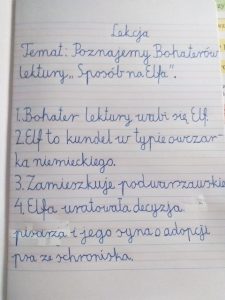 Lekcja
Temat: Poznajemy Bohaterów
lektury „Sposób na Elfa".
1. Bohater lektury wabi się Elf.
2. Elf to kundel w typie owczar-
ka niemieckiego.
3. Zamieszkuje podwarszawskie
4. Elfa uratowała decyzja
pisarza i jego syna o adopcji
psa ze schroniska.